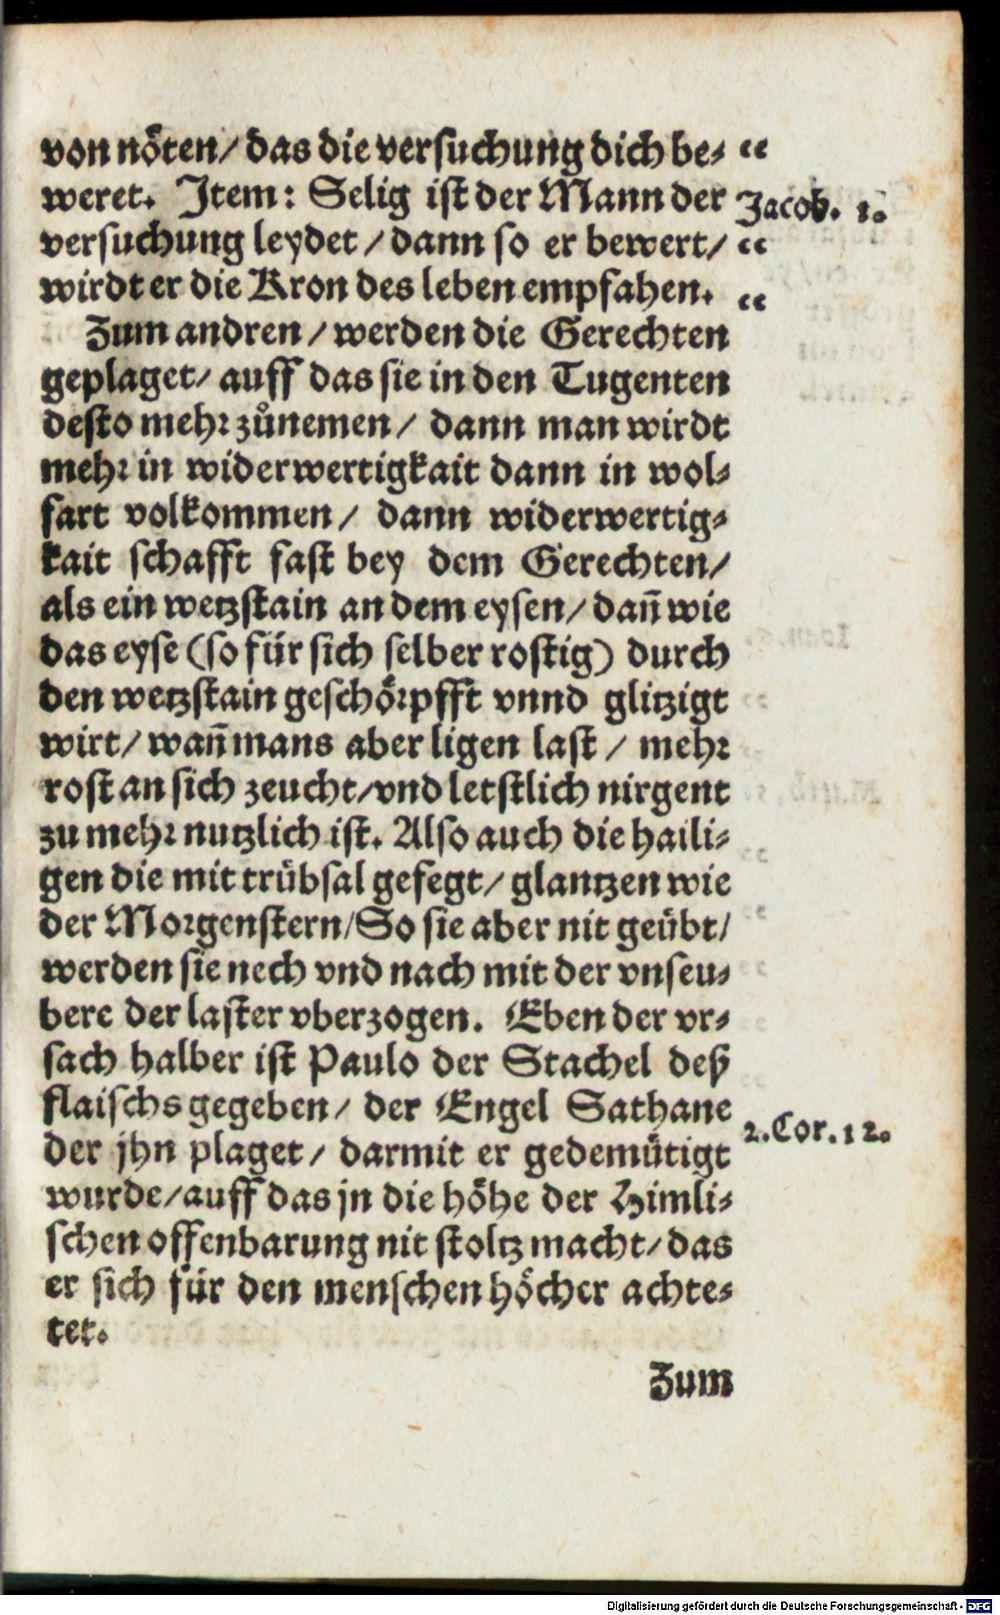 von nöten/ das die versuchung dich be- “
weret. Item: Selig ist der Mann der Jacob. 1.
versuchung leydet / dann so er bewert/ “
wirdt er die Kron des leben empfahen. “
Zum andren / werden die Gerechten
geplaget/ auff das sie in den Tugenten
desto mehr zůnemen / dann man wirdt
mehr in widerwertigkait dann in wol-
fart volkommen / dann widerwertig-
kait schafft fast bey dem Gerechten/
als ein wetzstain an dem eysen/ dañ wie
das eyse (so für sich selber rostig) durch
den wetzstain geschörpfft vnnd glitzigt
wirt/ wañ mans aber ligen last / mehr
rost an sich zeucht/vnd letstlich nirgent
zu mehr nutzlich ist. Also auch die haili-
gen die mit trübsal gefegt/ glantzen wie
der Morgenstern/So sie aber nit geübt/
werden sie nech vnd nach mit der vnseu-
bere der laster vberzogen. Eben der vr-
sach halber ist Paulo der Stachel deß
flaischs gegeben / der Engel Sathane
2. Cor. 12.
der jhn plaget / darmit er gedemütigt
wurde/auff das jn die höhe der Himli-
schen offenbarung nit stoltz macht/ das
er sich für den menschen höcher achte-
tet.
Zum
Digitalisierung gefördert durch die Deutsche Forschungsgemeinschaft - DFG